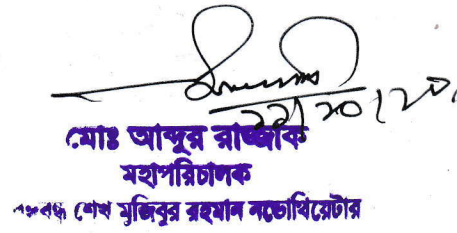 ২২/১০/২০
মোঃ আব্দুর রাজ্জাক
মহাপরিচালক
বঙ্গবন্ধু শেখ মুজিবুর রহমান নভোথিয়েটার